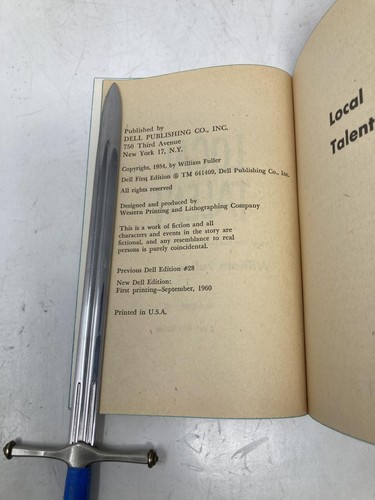 Published by
DELL PUBLISHING CO., INC.
750 Third Avenue
New York 17, N.Y.
Copyright, 1954, by William Fuller
Dell First Edition ® TM 641409, Dell Publishing Co., Inc.
All rights reserved
Designed and produced by
Western Printing and Lithographing Company
This is a work of fiction and all
characters and events in the story are
fictional, and any resemblance to real
persons is purely coincidental.
Previous Dell Edition #28
New Dell Edition:
First printing—September, 1960
Printed in U.S.A.
Local
Talent